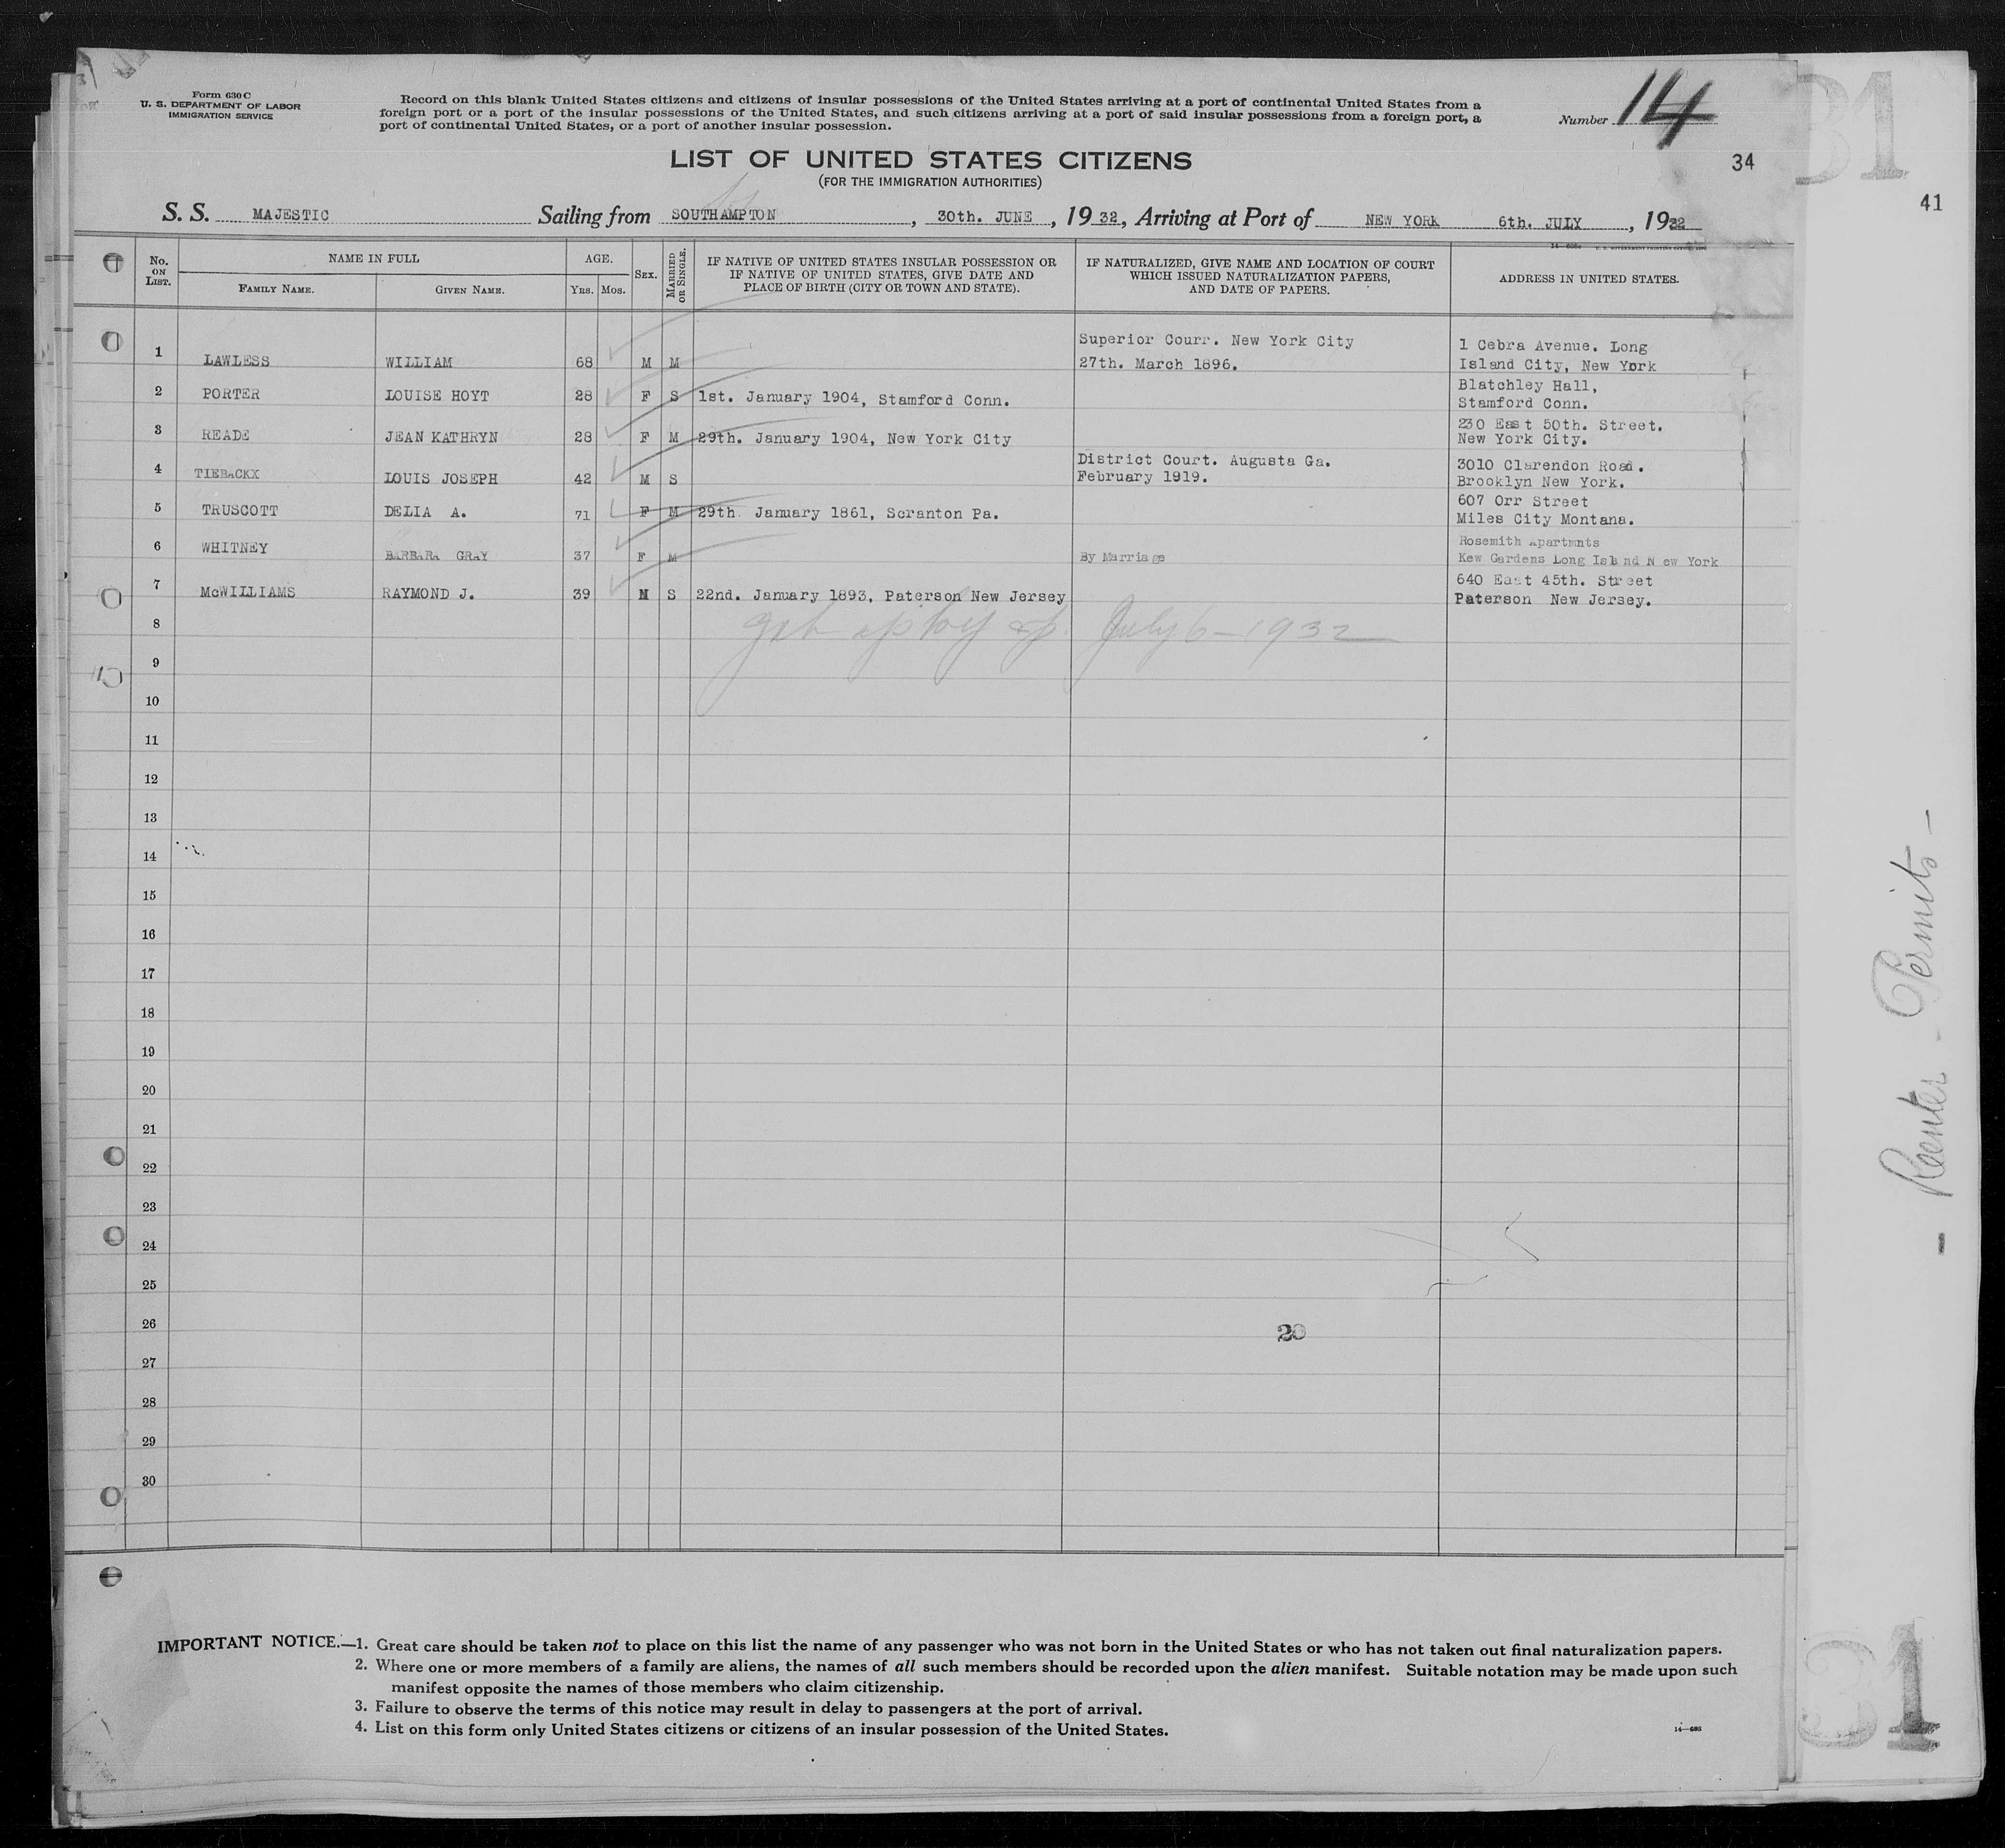 Form 630 C
U. S. DEPARTMENT OF LABOR
IMMIGRATION SERVICE
Record on this blank United States citizens and citizens of insular possessions of the United States arriving at a port of continental United States from a
foreign port or a port of the insular possessions of the United States, and such citizens arriving at a port of said insular possessions from a foreign port, a
port of continental United States, or a port of another insular possession.
Number 14
31
LIST OF UNITED STATES CITIZENS
34
(FOR THE IMMIGRATION AUTHORITIES)
41
S. S. MAJESTIC Sailing from SOUTHAMPTON, 30th. JUNE, 19 32, Arriving at Port of NEW YORK 6th. JULY, 1932
No. ON LIST.
NAME IN FULL
FAMILY NAME.
GIVEN NAME.
AGE.
YRS. MOS.
SEX.
MARRIED OR SINGLE.
IF NATIVE OF UNITED STATES INSULAR POSSESSION OR
IF NATIVE OF UNITED STATES, GIVE DATE AND
PLACE OF BIRTH (CITY OR TOWN AND STATE).
IF NATURALIZED, GIVE NAME AND LOCATION OF COURT
WHICH ISSUED NATURALIZATION PAPERS,
AND DATE OF PAPERS.
ADDRESS IN UNITED STATES.
Superior Courr. New York City 1 Cebra Avenue. Long
1 LAWLESS WILLIAM 68 M M 27th. March 1896. Island City, New York
Blatchley Hall,
2 PORTER LOUISE HOYT 28 F S 1st. January 1904, Stamford Conn. Stamford Conn.
230 East 50th. Street.
3 READE JEAN KATHRYN 28 F M 29th. January 1904, New York City New York City.
District Court. Augusta Ga. 3010 Clarendon Road.
4 TIEBACKX LOUIS JOSEPH 42 M S February 1919. Brooklyn New York.
607 Orr Street
5 TRUSCOTT DELIA A. 71 F M 29th January 1861, Scranton Pa. Miles City Montana.
Rosemith Apartmnts
6 WHITNEY BARBARA GRAY 37 F M By Marriage Kew Gardens Long Islnd N ew York
640 East 45th. Street
7 McWILLIAMS RAYMOND J. 39 M S 22nd. January 1893, Paterson New Jersey Paterson New Jersey.
8 July 6 - 1932
9
10
11
12
13
14
15
16
17
18
19
20
21
22
23
24
25
26
20
27
28
29
30
IMPORTANT NOTICE.—1. Great care should be taken not to place on this list the name of any passenger who was not born in the United States or who has not taken out final naturalization papers.
2. Where one or more members of a family are aliens, the names of all such members should be recorded upon the alien manifest. Suitable notation may be made upon such
manifest opposite the names of those members who claim citizenship.
3. Failure to observe the terms of this notice may result in delay to passengers at the port of arrival.
4. List on this form only United States citizens or citizens of an insular possession of the United States.
- Reenter - Permits -
31